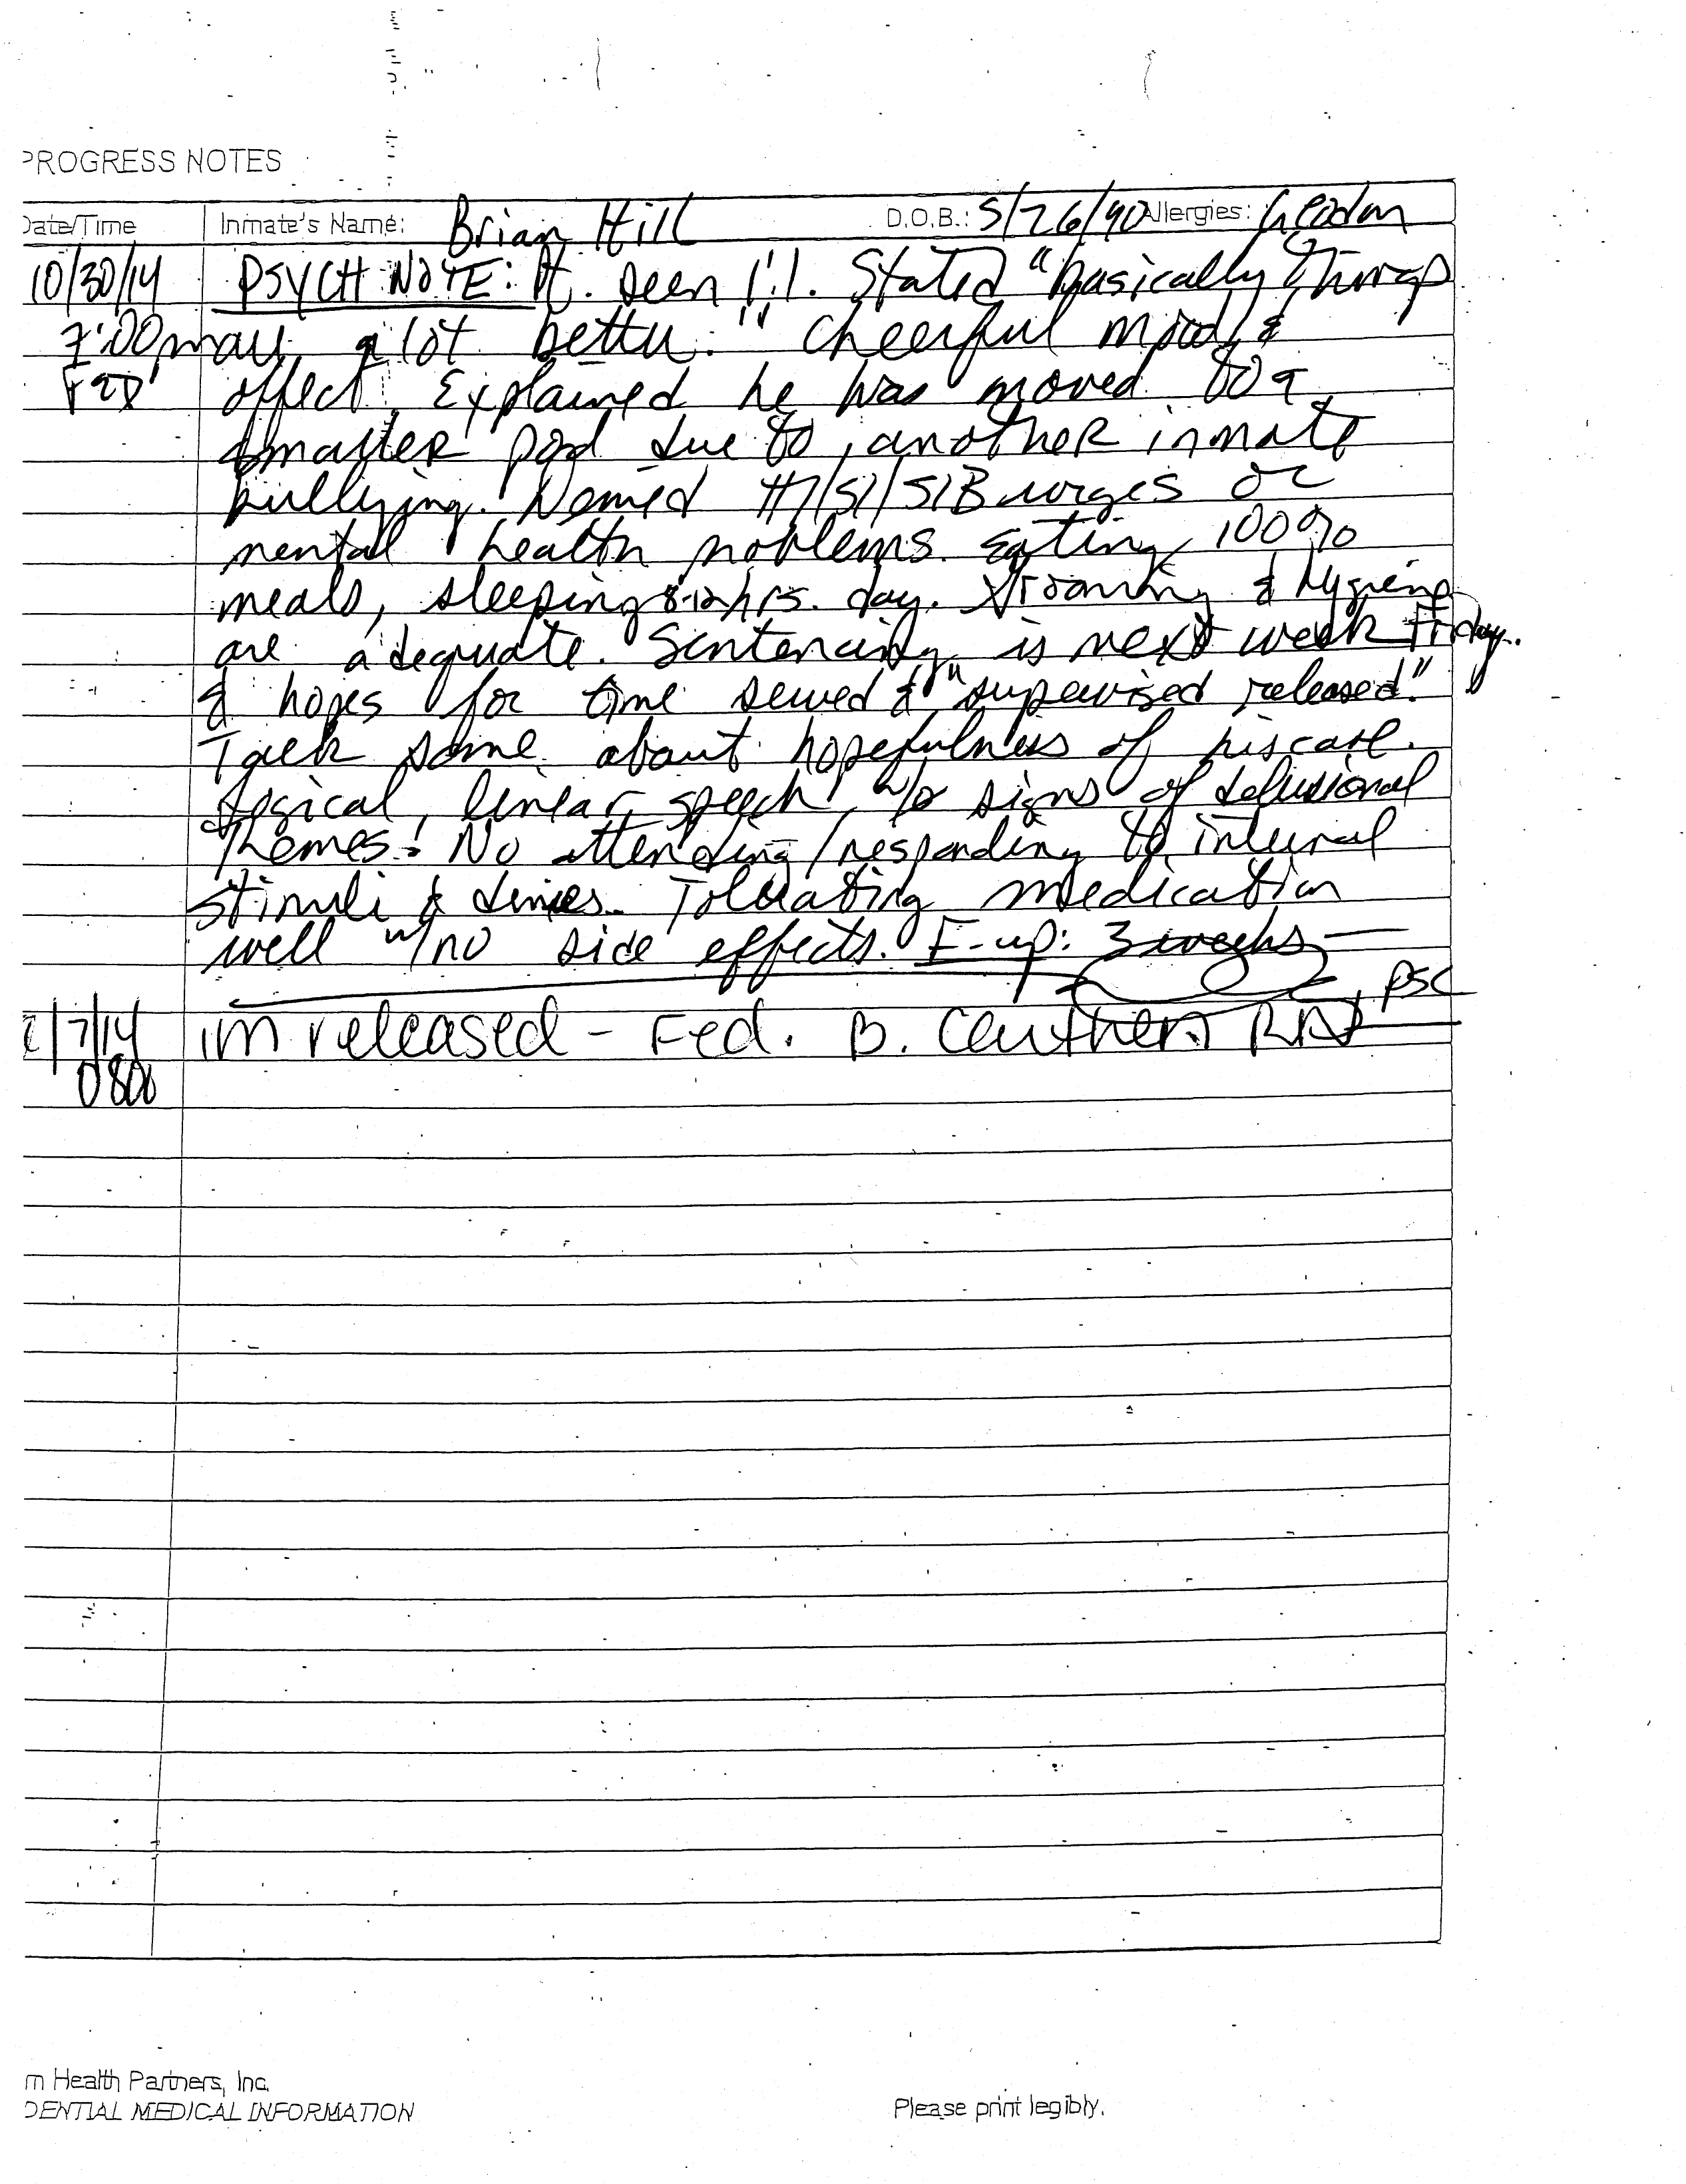 PROGRESS NOTES
Date/Time Inmate's Name: Brian Hill D.O.B.: 5/26/90 Allergies:
10/30/14 PSYCH NOTE: Pt. seen 1:1. Stated "basically things
:00pm a lot better." Cheerful mood &
affect. Explained he was moved to a
smaller pod due to another inmate
bullying. Denied HI/SI/SIB urges or
mental health problems. Eating 100%
meals, sleeping 8-12 hrs. day. Grooming & hygiene
are adequate. Sentencing is next week Friday.
& hopes for time served & "supervised released."
some about hopefulness of his case.
Logical, linear speech, w/o signs of delusional
themes. No attending/responding to internal
stimuli & denies. Tolerating medication
well w/no side effects. F-up: 3 weeks
, PSC
/7/14 im released - Fed. B.
0800
m Health Partners, Inc.
DENTIAL MEDICAL INFORMATION Please print legibly.